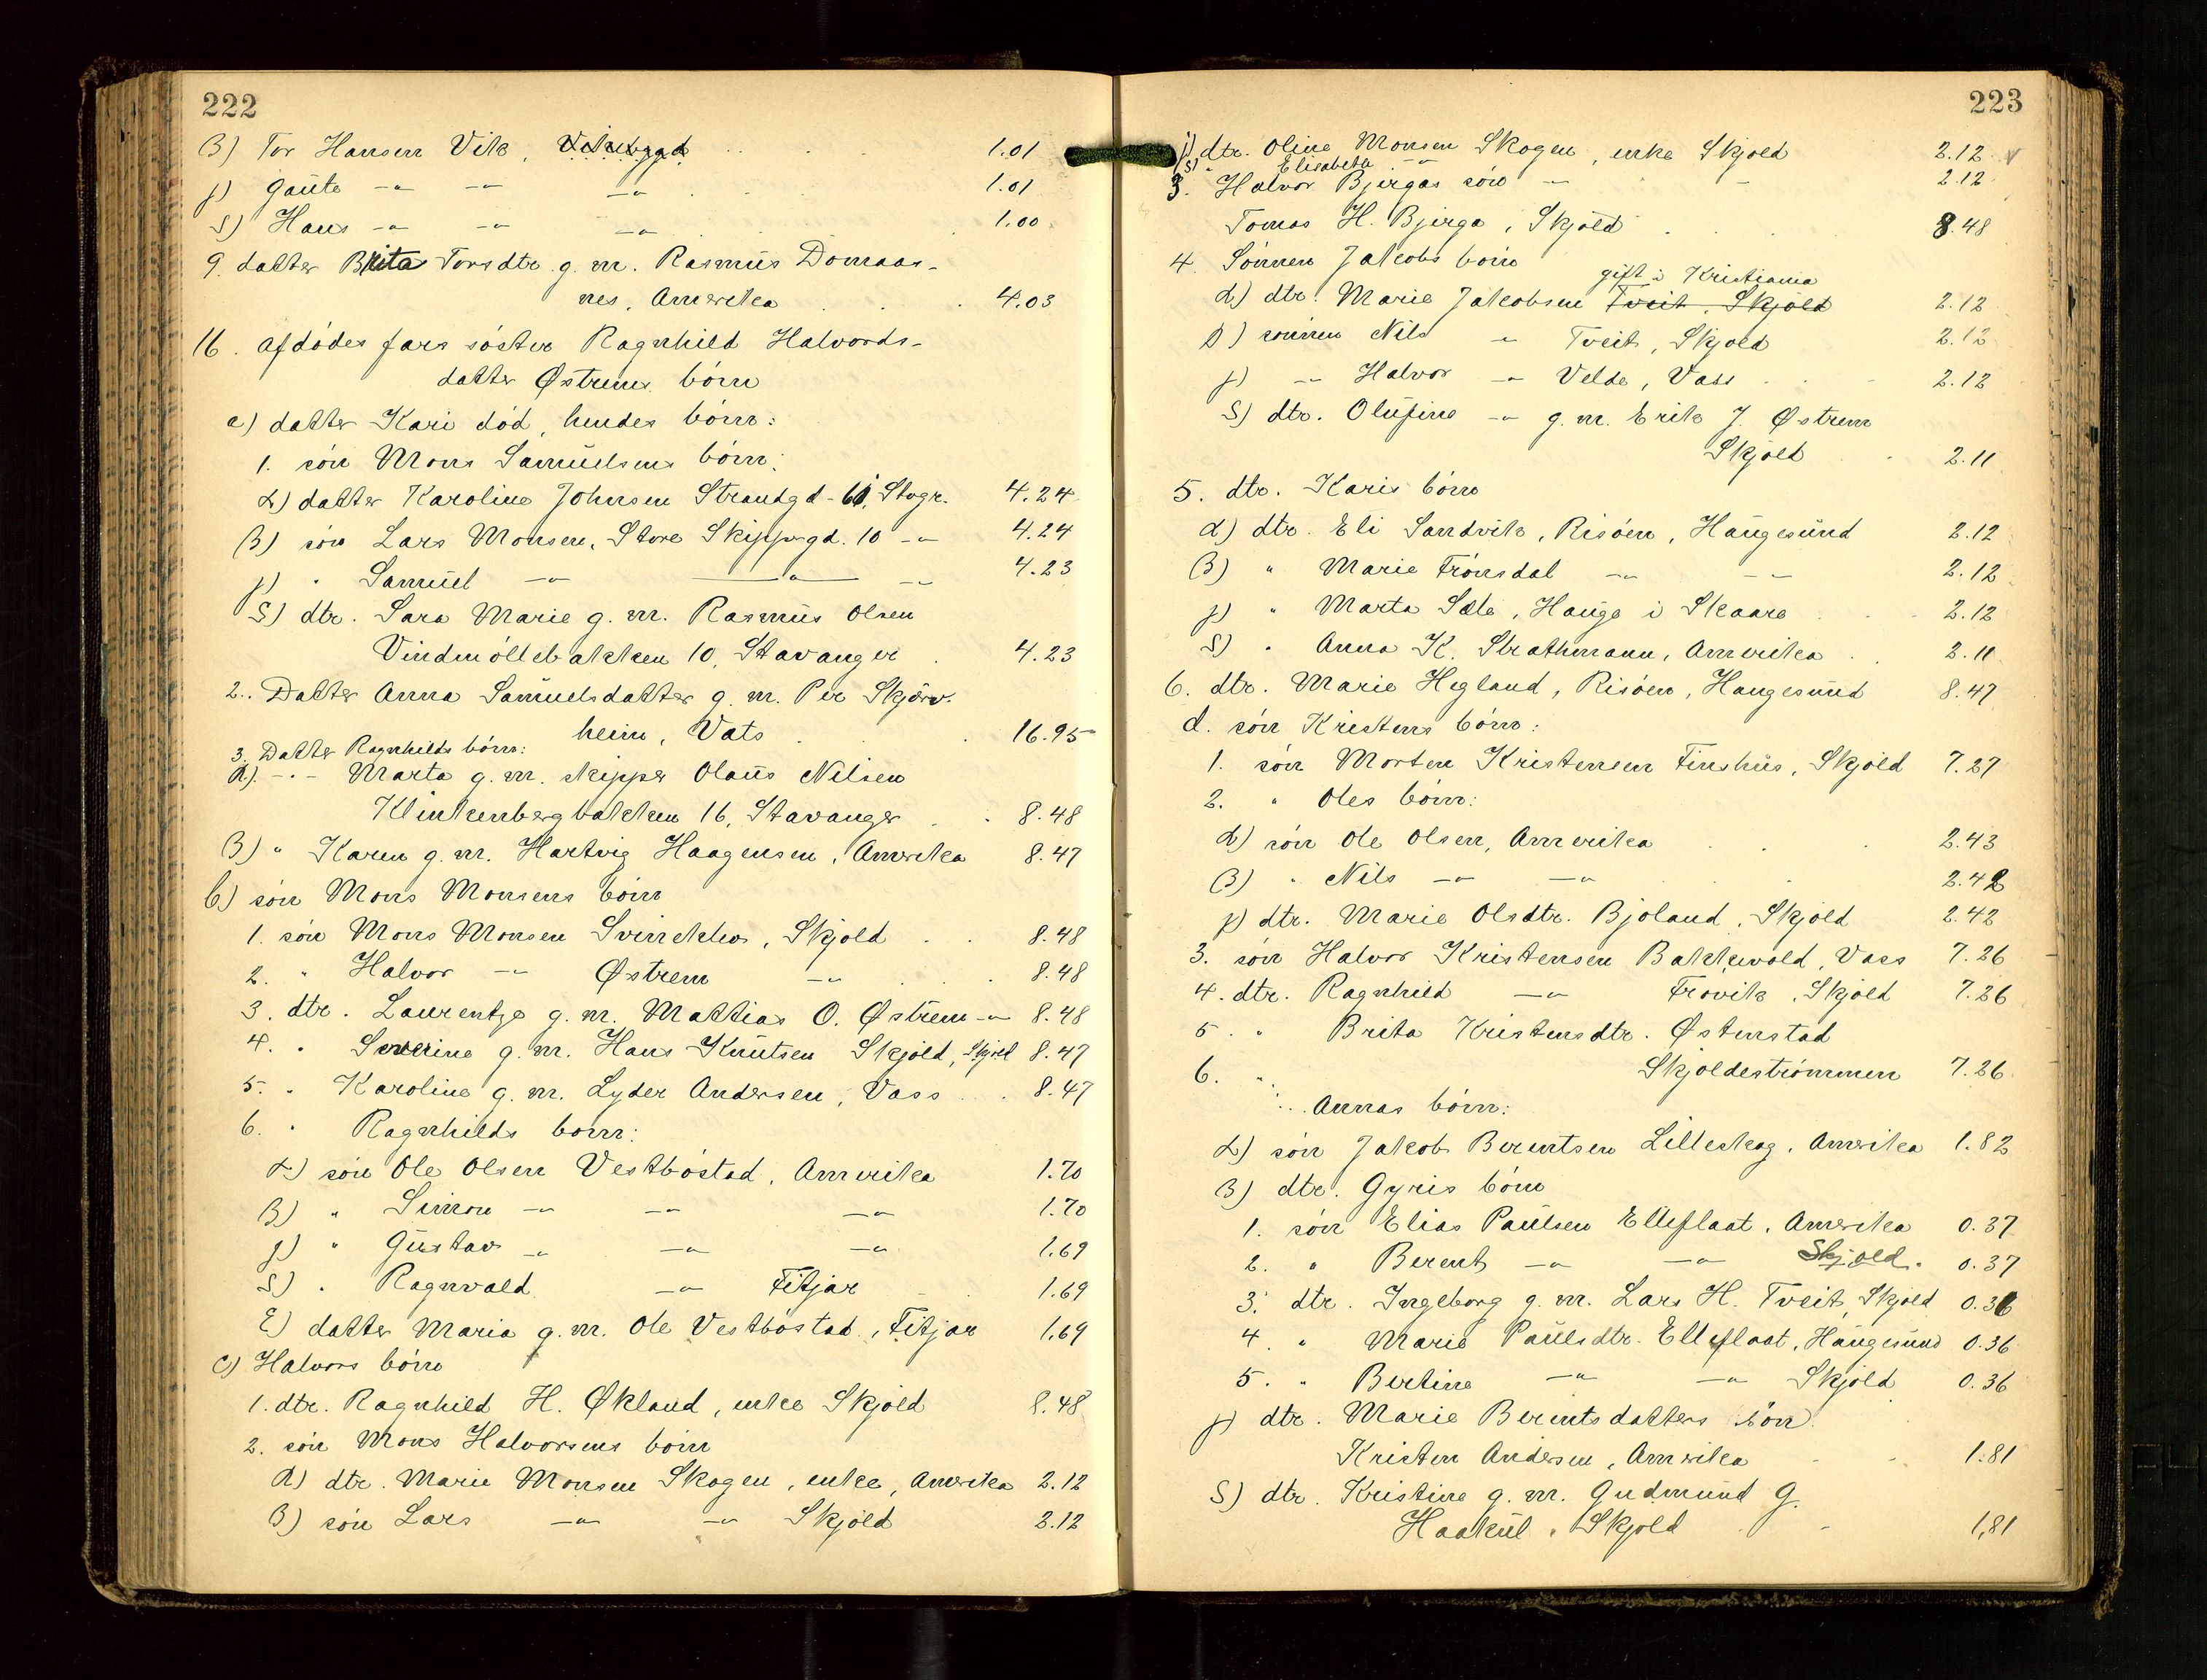 222
β) Tor Hansen Vik, Vikebygd 1.01
γ) Gaute —„— —„— —„— 1.01
δ) Hans —„— —„— —„— 1.00
9. datter Brita Torsdtr. g. m. Rasmus Domaas-
nes, Amerika 4.03
16. Afdødes fars søster Ragnhild Halvords-
datter Østrems børn
a) datter Kari død, hendes børn:
1. søn Mons Samuelsens børn:
α) datter Karoline Johnsen Strandgd - 61, Stvgr. 4.24
β) søn Lars Monsen, Store Skippergd. 10 —„— 4.24
γ) „ Samuel —„— —„— —„— 4.23
δ) dtr. Sara Marie g. m. Rasmus Olsen
Vindmøllebakken 10, Stavanger 4.23
2. Datter Anna Samuelsdatter g. m. Per Skjærv-
heim, Vats 16.95
3. Datter Ragnhilds børn:
α) —„— Marta g. m. skipper Olaus Nilsen
Klinkenbergbakken 16, Stavanger 8.48
β) „ Karen g. m. Hartvig Haagensen, Amerika 8.47
b) søn Mons Monsens børn
1. søn Mons Monsen Svineklev, Skjold 8.48
2. „ Halvor —„— Østrem —„— 8.48
3. dtr. Laurentze g. m. Mattias O. Østrem —„— 8.48
4. „ Severine g. m. Hans Knutsen Skjold, Skjold 8.47
5. „ Karoline g. m. Lyder Andersen, Vass 8.47
6. „ Ragnhilds børn:
α) søn Ole Olsen Vestbøstad, Amerika 1.70
β) „ Simon —„— —„— —„— 1.70
γ) „ Gustav —„— —„— —„— 1.69
δ) „ Ragnvald —„— Fitjar 1.69
ε) datter Maria g. m. Ole Vestbøstad, Fitjar 1,69
c) Halvors børn
1. dtr. Ragnhild H. Økland, enke Skjold 8.48
2. søn Mons Halvorsens børn
α) dtr. Marie Monsen Skogen, enke, Amerika 2.12
β) søn Lars —„— —„— Skjold 2.12
223
γ) dtr. Oline Monsen Skogen, enke Skjold 2.12
δ) „ Elisabeth —„— — — 2.12
3. Halvor Bjergas søn
Tomas H. Bjerga, Skjold 8.48
4. Sønnen Jakobs børn
gift i Kristiania
α) dtr. Marie Jakobsen Tveit, Skjold 2.12
β) sønnen Nils —„— Tveit, Skjold 2.12
γ) —„— Halvor —„— Velde, Vass 2.12
δ) dtr. Olufine —„— g. m. Erik J. Østrem
Skjold 2.11
5. dtr. Karis børn
α) dtr. Eli Sandvik, Risøen, Haugesund 2.12
β) „ Marie Frønsdal —„— —„— 2.12
γ) „ Marta Sæle, Hauge i Skaare 2.12
δ) „ Anna K. Strathmann, Amerika 2.11
6. dtr. Marie Hegland, Risøen, Haugesund 8.47
d. søn Kristens børn:
1. søn Morten Kristensen Finshus, Skjold 7.27
2. „ Oles børn:
α) søn Ole Olsen, Amerika 2.43
β) „ Nils —„— —„— 2.42
γ) dtr. Marie Olsdtr. Bjoland, Skjold 2.42
3. søn Halvor Kristensen Bakkevold, Vass 7.26
4. dtr. Ragnhild —„— Frovik, Skjold 7.26
5. „ Brita Kristensdtr. Østenstad
6. „ Skjoldestrømmen 7.26
Annas børn:
α) søn Jakob Berentsen Lilleskog, Amerika 1.82
β) dtr. Gyris børn
1. søn Elias Paulsen Elleflaat, Amerika 0.37
2. „ Berent —„— —„— Skjold. 0.37
3. dtr. Ingeborg g. m. Lars H. Tveit, Skjold 0.36
4. „ Marie Paulsdtr. Elleflaat, Haugesund 0.36
5. „ Bertine —„— —„— Skjold 0.36
γ) dtr. Marie Berentsdatters søn
Kristen Andersen, Amerika 1.81
δ) dtr. Kristine g. m. Gudmund G.
Haakul, Skjold 1,81